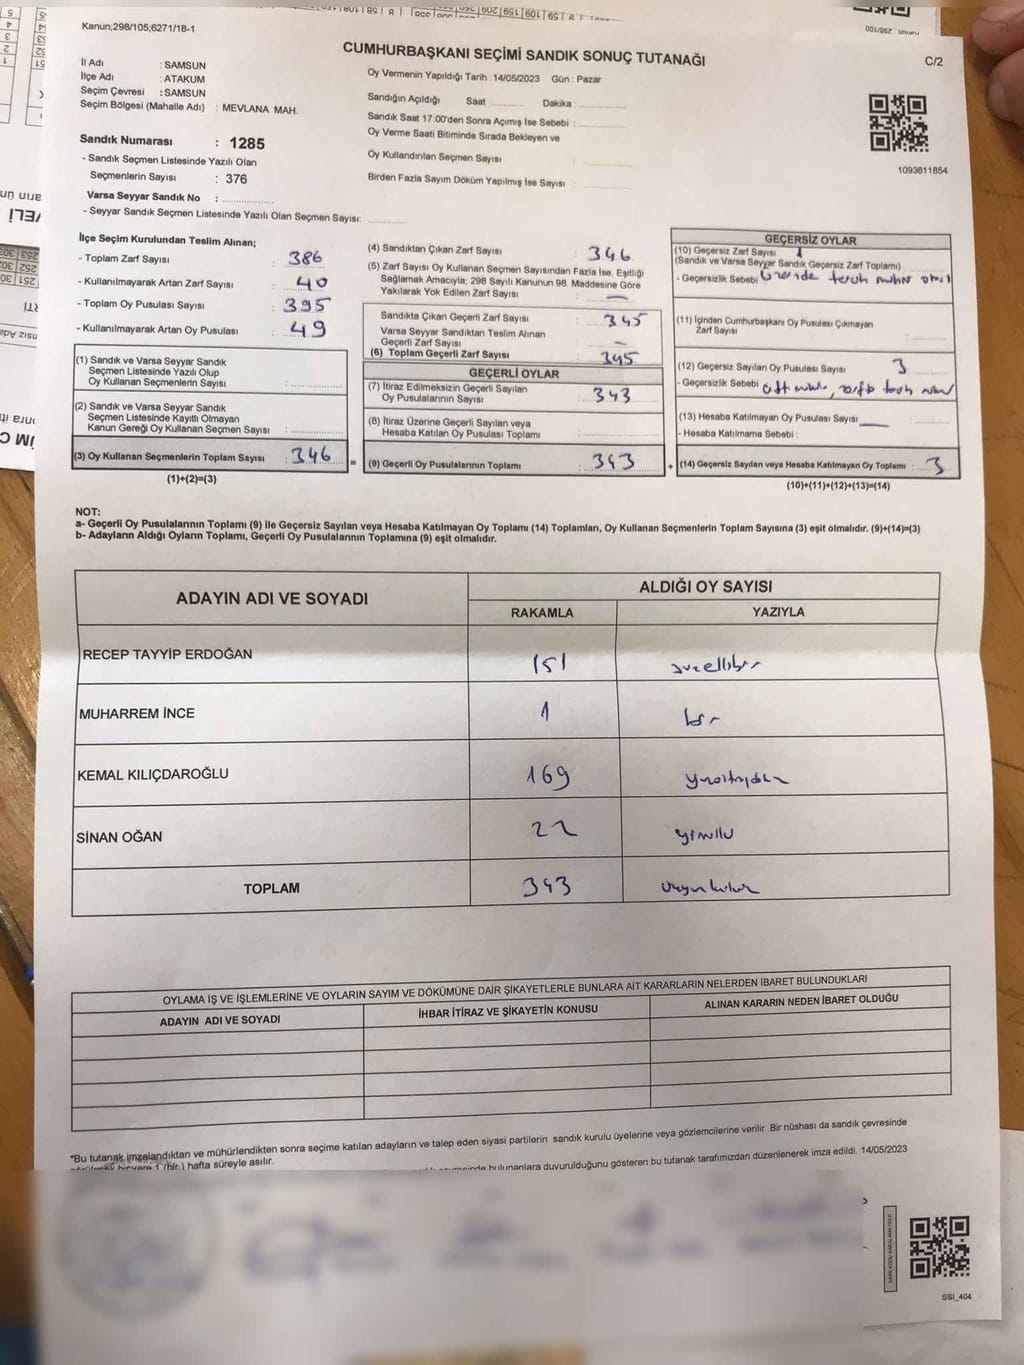 Kanun;298/105;6271/18-1
CUMHURBAŞKANI SEÇİMİ SANDIK SONUÇ TUTANAĞI
C/2
İl Adı : SAMSUN
İlçe Adı : ATAKUM
Seçim Çevresi : SAMSUN
Seçim Bölgesi (Mahalle Adı) : MEVLANA MAH.
Sandık Numarası : 1285
- Sandık Seçmen Listesinde Yazılı Olan
Seçmenlerin Sayısı : 376
Varsa Seyyar Sandık No :
- Seyyar Sandık Seçmen Listesinde Yazılı Olan Seçmen Sayısı:
Oy Vermenin Yapıldığı Tarih : 14/05/2023 Gün : Pazar
Sandığın Açıldığı Saat : Dakika :
Sandık Saat 17:00'den Sonra Açımış İse Sebebi :
Oy Verme Saati Bitiminde Sırada Bekleyen ve
Oy Kullandırılan Seçmen Sayısı :
Birden Fazla Sayım Döküm Yapılmış İse Sayısı :
1093611854
İlçe Seçim Kurulundan Teslim Alınan;
- Toplam Zarf Sayısı : 386
- Kullanılmayarak Artan Zarf Sayısı : 40
- Toplam Oy Pusulası Sayısı : 395
- Kullanılmayarak Artan Oy Pusulası : 49
(1) Sandık ve Varsa Seyyar Sandık
Seçmen Listesinde Yazılı Olup
Oy Kullanan Seçmenlerin Sayısı :
(2) Sandık ve Varsa Seyyar Sandık
Seçmen Listesinde Kayıtlı Olmayan
Kanun Gereği Oy Kullanan Seçmen Sayısı :
(3) Oy Kullanan Seçmenlerin Toplam Sayısı : 346 =
(1)+(2)=(3)
(4) Sandıktan Çıkan Zarf Sayısı : 346
(5) Zarf Sayısı Oy Kullanan Seçmen Sayısından Fazla İse, Eşitliği
Sağlamak Amacıyla; 298 Sayılı Kanunun 98. Maddesine Göre
Yakılarak Yok Edilen Zarf Sayısı : —
Sandıkta Çıkan Geçerli Zarf Sayısı : 345
Varsa Seyyar Sandıktan Teslim Alınan
Geçerli Zarf Sayısı : —
(6) Toplam Geçerli Zarf Sayısı : 345
GEÇERLİ OYLAR
(7) İtiraz Edilmeksizin Geçerli Sayılan
Oy Pusulalarının Sayısı : 343
(8) İtiraz Üzerine Geçerli Sayılan veya
Hesaba Katılan Oy Pusulası Toplamı :
(9) Geçerli Oy Pusulalarının Toplamı : 343 +
GEÇERSİZ OYLAR
(10) Geçersiz Zarf Sayısı : 1
(Sandık ve Varsa Seyyar Sandık Geçersiz Zarf Toplamı)
- Geçersizlik Sebebi üzerinde tercih mühür
(11) İçinden Cumhurbaşkanı Oy Pusulası Çıkmayan
Zarf Sayısı :
(12) Geçersiz Sayılan Oy Pusulası Sayısı : 3
- Geçersizlik Sebebi
(13) Hesaba Katılmayan Oy Pusulası Sayısı : —
- Hesaba Katılmama Sebebi :
(14) Geçersiz Sayılan veya Hesaba Katılmayan Oy Toplamı : 3
(10)+(11)+(12)+(13)=(14)
NOT:
a- Geçerli Oy Pusulalarının Toplamı (9) ile Geçersiz Sayılan veya Hesaba Katılmayan Oy Toplamı (14) Toplamları, Oy Kullanan Seçmenlerin Toplam Sayısına (3) eşit olmalıdır. (9)+(14)=(3)
b- Adayların Aldığı Oyların Toplamı, Geçerli Oy Pusulalarının Toplamına (9) eşit olmalıdır.
ADAYIN ADI VE SOYADI
ALDIĞI OY SAYISI
RAKAMLA YAZIYLA
RECEP TAYYİP ERDOĞAN 151 yüzellibir
MUHARREM İNCE 1 bir
KEMAL KILIÇDAROĞLU 169
SİNAN OĞAN 22 yirmiiki
TOPLAM 343
OYLAMA İŞ VE İŞLEMLERİNE VE OYLARIN SAYIM VE DÖKÜMÜNE DAİR ŞİKAYETLERLE BUNLARA AİT KARARLARIN NELERDEN İBARET BULUNDUKLARI
ADAYIN ADI VE SOYADI İHBAR İTİRAZ VE ŞİKAYETİN KONUSU ALINAN KARARIN NEDEN İBARET OLDUĞU
*Bu tutanak imzalandıktan ve mühürlendikten sonra seçime katılan adayların ve talep eden siyasi partilerin sandık kurulu üyelerine veya gözlemcilerine verilir .Bir nüshası da sandık çevresinde
1 (bir) hafta süreyle asılır.
bulunanlara duyurulduğunu gösteren bu tutanak tarafımızdan düzenlenerek imza edildi. 14/05/2023
SSI_404